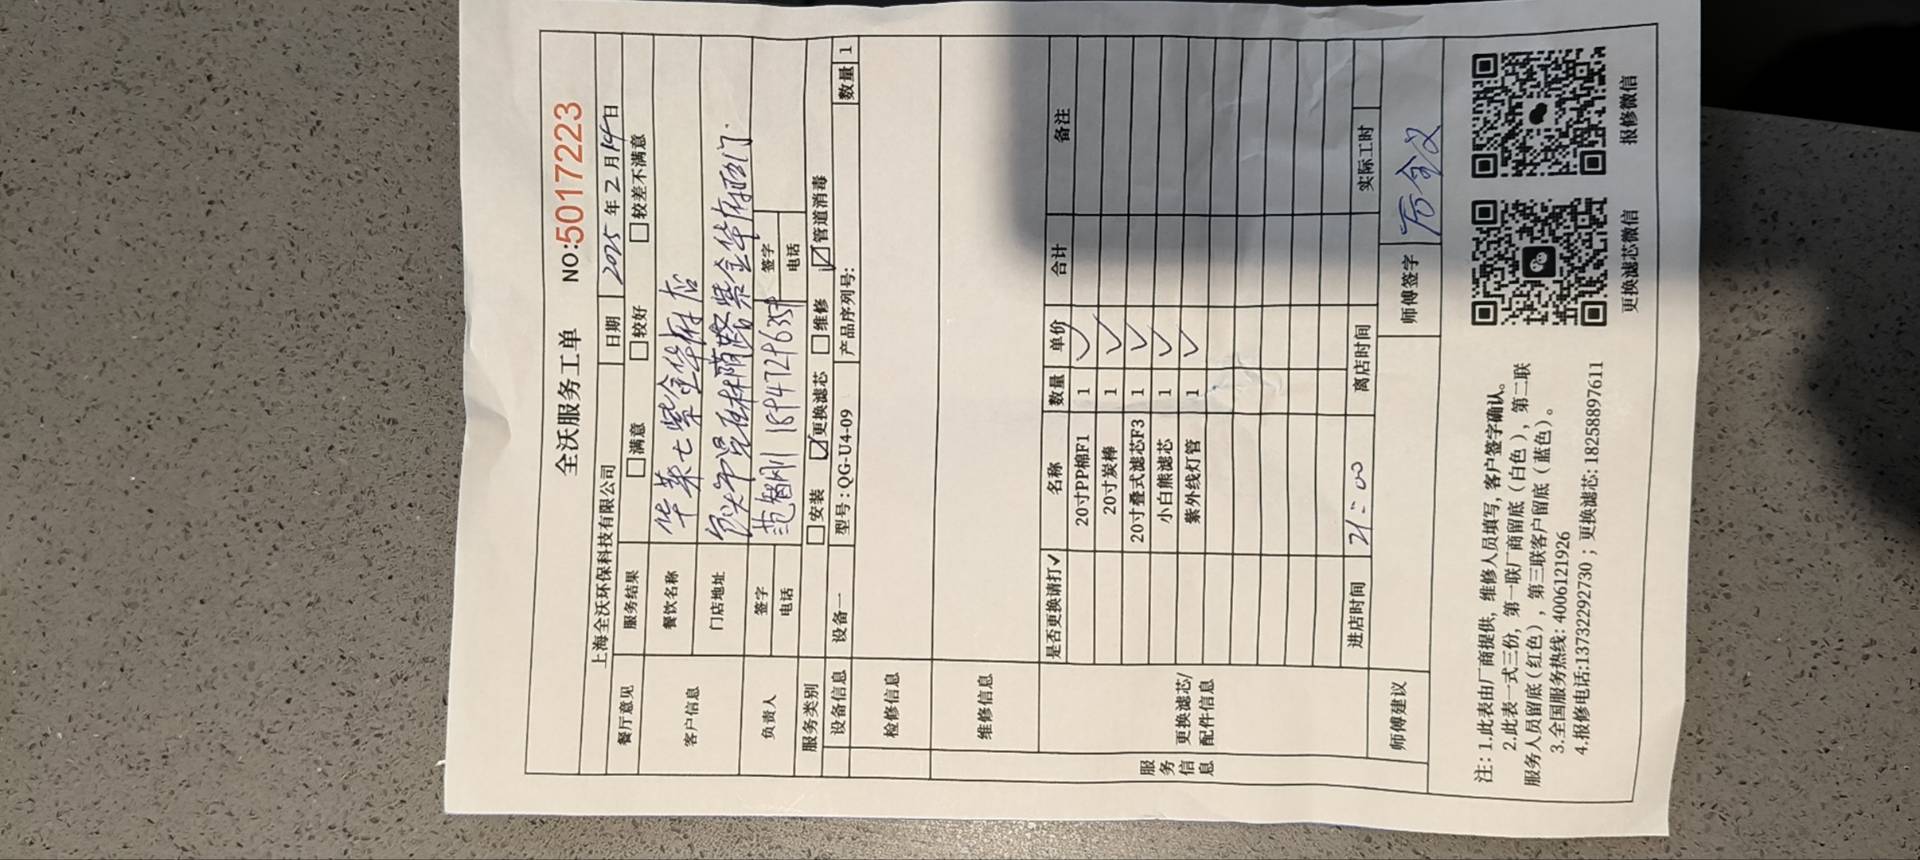 全沃服务工单 NO:5017223
上海全沃环保科技有限公司 日期 2025 年 2 月 14 日
餐厅意见 服务结果 □满意 □较好 □较差不满意
客户信息 餐饮名称 华莱士紫金华府店
门店地址 紫金华府西门.
负责人 签字 范智刚 签字
电话 电话
服务类别 □安装 ☑更换滤芯 □维修 ☑管道消毒
设备信息 设备一 型号:QG-U4-09 产品序列号: 数量 1
检修信息
维修信息
服务信息
更换滤芯/配件信息
是否更换请打✓ 名称 数量 单价 合计 备注
20寸PP棉F1 1 ✓
20寸炭棒 1 ✓
20寸叠式滤芯F3 1 ✓
小白熊滤芯 1 ✓
紫外线灯管 1 ✓
进店时间 21:00 离店时间 实际工时
师傅建议 师傅签字
注: 1.此表由厂商提供, 维修人员填写, 客户签字确认。
2.此表一式三份, 第一联厂商留底(白色), 第二联
服务人员留底(红色), 第三联客户留底(蓝色)。
3.全国服务热线: 4006121926
4.报修电话:13732292730 ; 更换滤芯: 18258897611
更换滤芯微信 报修微信